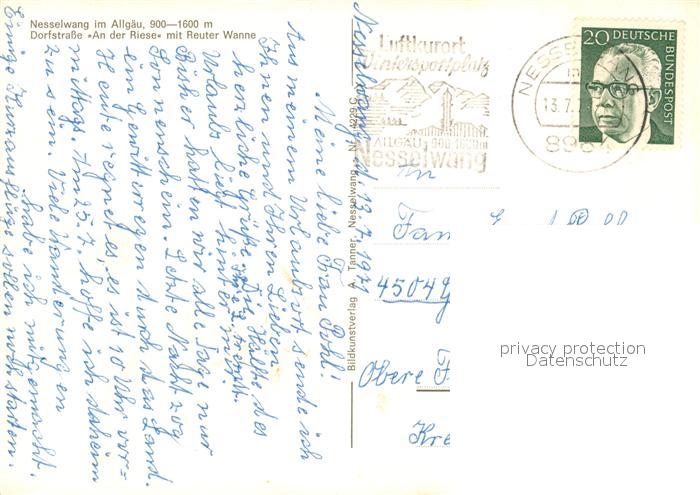 Nesselwang im Allgäu, 900—1600 m
Dorfstraße »An der Riese« mit Reuter Wanne
Nesselwang, d. 13.7.197
Meine liebe Frau Pohl!
Aus meinem Urlaubsort sende ich
Ihnen und Ihren Lieben
herzliche Grüße. Die Hälfte des
Urlaubs liegt hinter mir.
Bisher hatten wir alle Tage nur
Sonnenschein. Letzte Nacht zog
ein Gewitterregen durch das Land.
Heute regnet es, es ist 10 Uhr vor=
mittags. Am 25.7. hoffe ich daheim
zu sein. Viele Wanderungen
habe ich mitgemacht.
Einige Kurausflüge sollen noch starten.
Bildkunstverlag A. Tanner, Nesselwang Nr. 4229 C
Luftkurort
Wintersportplatz
ALLGÄU 900-1600m
Nesselwang
NESSELWANG
13.7.
896
20 DEUTSCHE
BUNDESPOST
An
Fam
4504 G
Obere F
Kre
privacy protection
Datenschutz